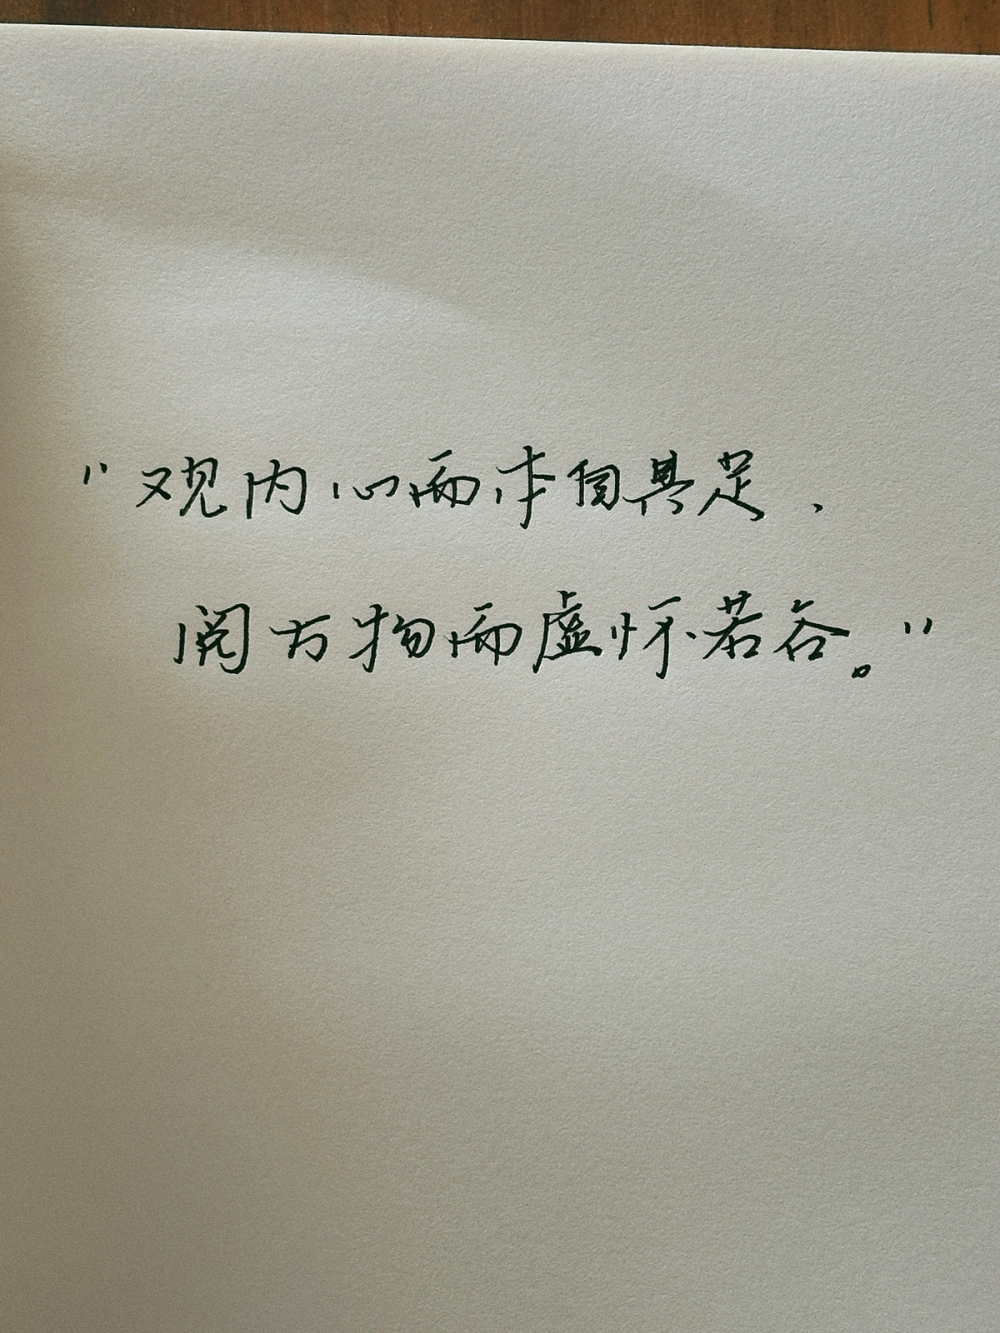 “观内心而本自具足,
阅万物而虚怀若谷。”